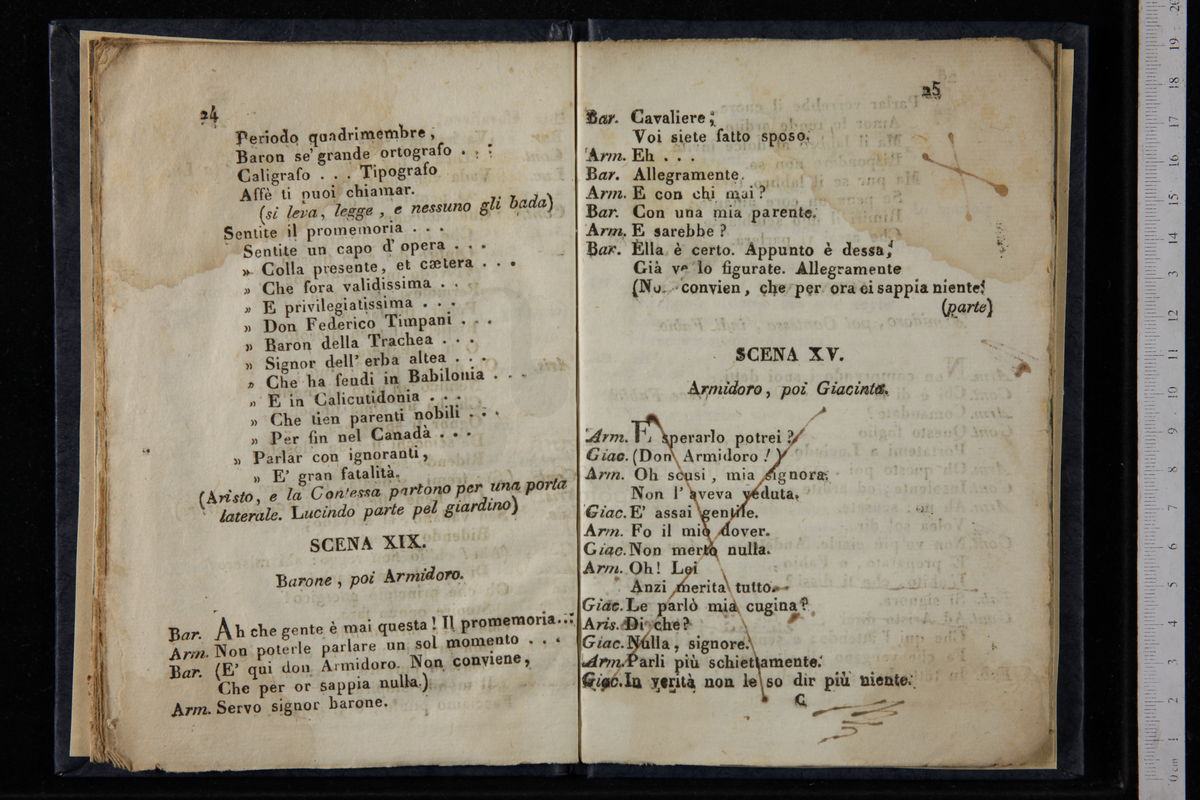 24
Periodo quadrimembre,
Baron se' grande ortografo . . .
Caligrafo . . . Tipografo
Affè ti puoi chiamar.
(si leva, legge, e nessuno gli bada)
Sentite il promemoria . . .
Sentite un capo d'opera . . .
» Colla presente, et cætera . . .
» Che fora validissima . .
» E privilegiatissima . . .
» Don Federico Timpani . . .
» Baron della Trachea . . .
» Signor dell' erba altea . . .
» Che ha feudi in Babilonia . . .
» E in Calicutidonia . . .
» Che tien parenti nobili . . .
» Per fin nel Canadà . . .
» Parlar con ignoranti,
» E' gran fatalità.
(Aristo, e la Contessa partono per una porta
laterale. Lucindo parte pel giardino)
SCENA XIX.
Barone, poi Armidoro.
Bar. Ah che gente è mai questa! Il promemoria...
Arm. Non poterle parlare un sol momento . . .
Bar. (E' qui don Armidoro. Non conviene,
Che per or sappia nulla.)
Arm. Servo signor barone.
25
Bar. Cavaliere;
Voi siete fatto sposo.
Arm. Eh . . .
Bar. Allegramente.
Arm. E con chi mai?
Bar. Con una mia parente.
Arm. E sarebbe?
Bar. Ella è certo. Appunto è dessa,
Già ve lo figurate. Allegramente
(No. convien, che per ora ei sappia niente.
(parte)
SCENA XV.
Armidoro, poi Giacinta.
Arm. E sperarlo potrei?
Giac. (Don Armidoro!)
Arm. Oh scusi, mia signora.
Non l'aveva veduta.
Giac. E' assai gentile.
Arm. Fo il mio dover.
Giac. Non merto nulla.
Arm. Oh! Lei
Anzi merita tutto.
Giac. Le parlò mia cugina?
Aris. Di che?
Giac. Nulla, signore.
Arm. Parli più schiettamente.
Giac. In verità non le so dir più niente.
C